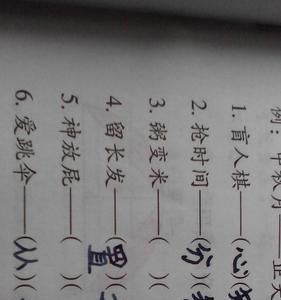 例：中秋月——正大
1. 盲人棋——(心)(
2. 抢时间——(分)(
3. 粥变米——( )(
4. 留长发——(置)(
5. 神放屁——( )(
6. 爱跳伞——(从)(